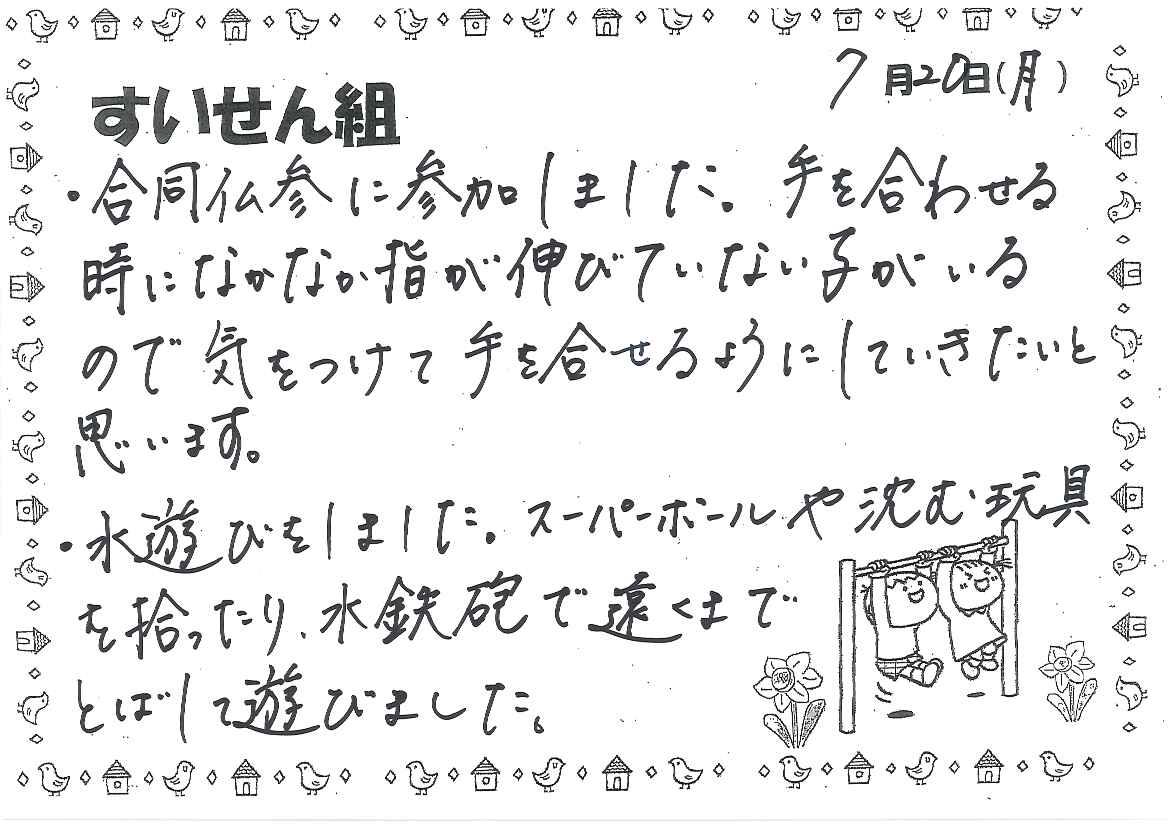 7月20日(月)
すいせん組
・合同仏参に参加しました。手を合わせる
時になかなか指が伸びていない子がいる
ので気をつけて手を合せるようにしていきたいと
思います。
・水遊びをしました。スーパーボールや沈む玩具
を拾ったり、水鉄砲で遠くまで
とばして遊びました。